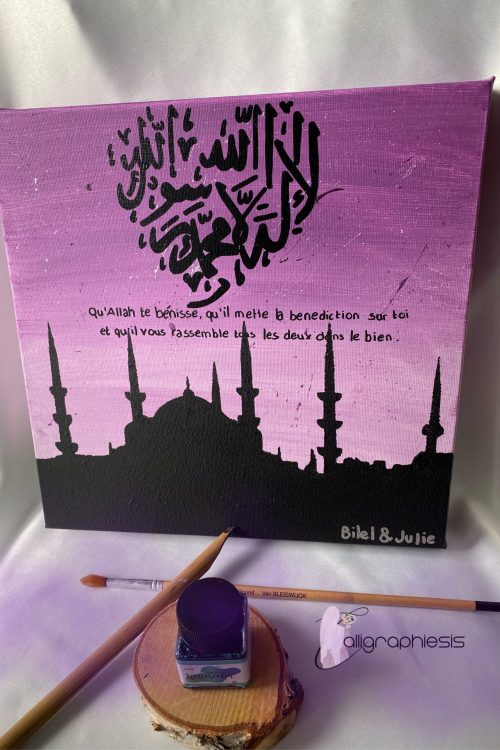 لا إله إلا الله محمد رسول الله
Qu'Allah te bénisse, qu'il mette la benediction sur toi
et qu'il vous rassemble tous les deux dans le bien.
Bilel & Julie
Van BLEISWIJCK
Calligraphiesis